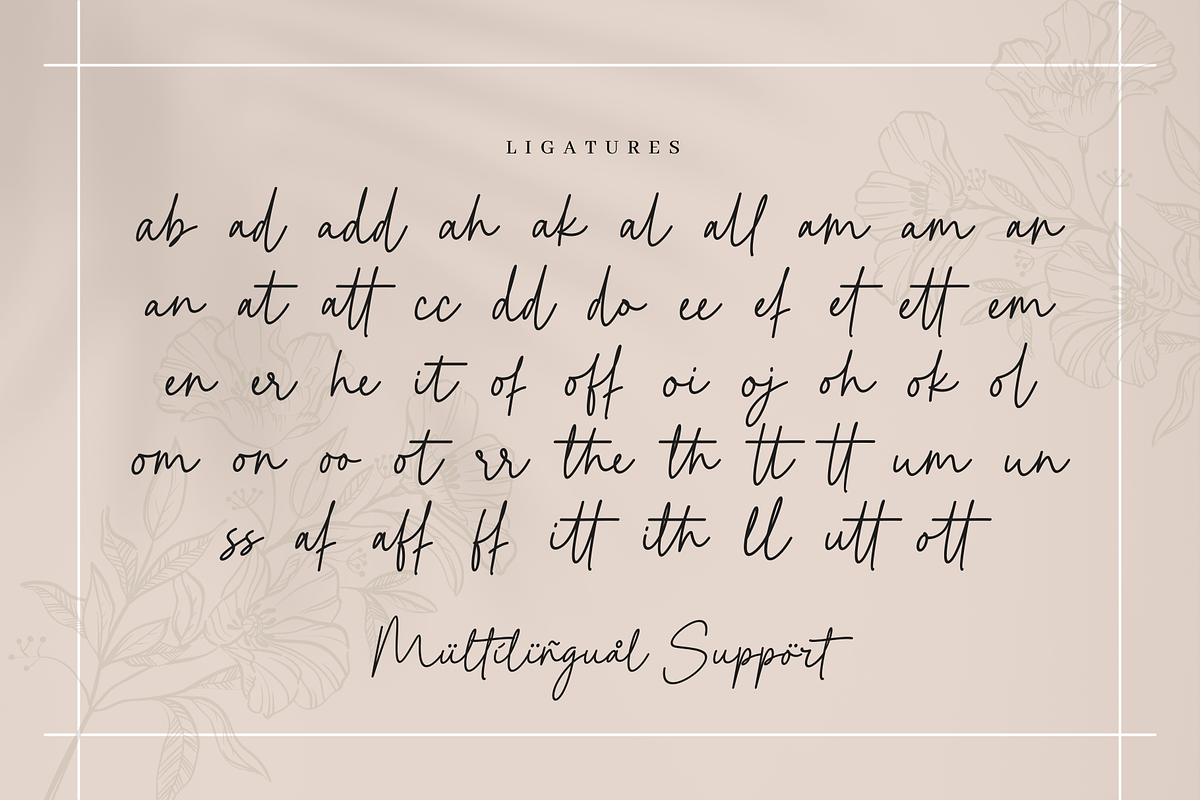 LIGATURES
ab ad add ah ak al all am am an
an at att cc dd do ee ef et ett em
en er he it of off oi oj oh ok ol
om on oo ot rr the th tt tt um un
ss af aff ff itt ith ll utt ott
Mültílïñguål Suppört